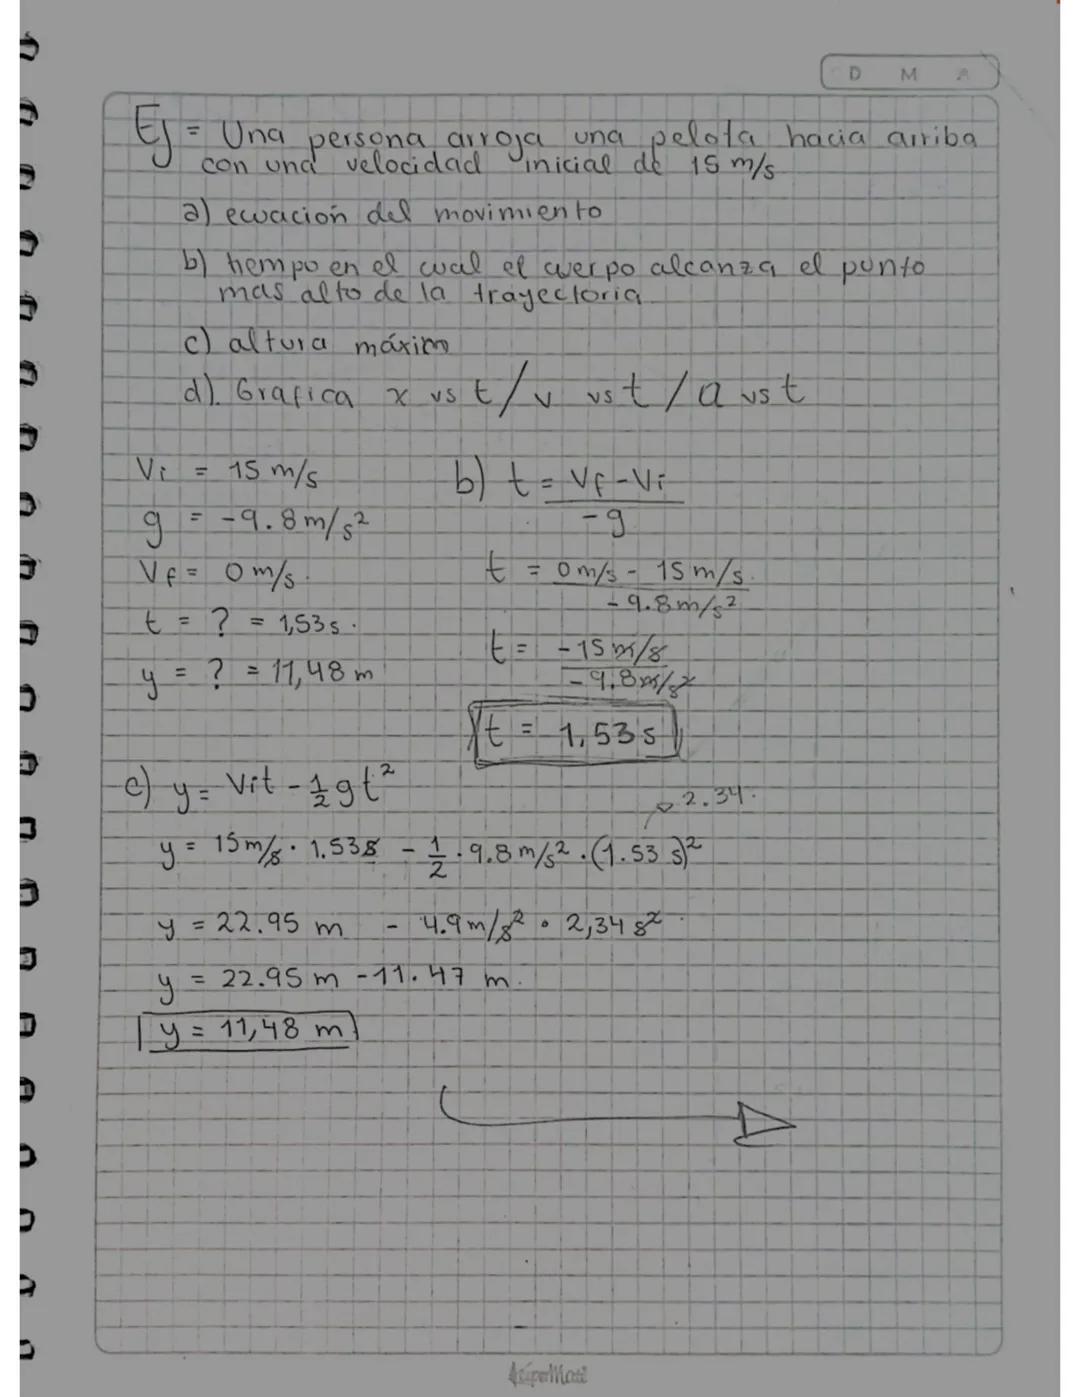 D M A
Ej = Una persona arroja una pelota hacia arriba
con una velocidad inicial de 15 m/s
a) ecuación del movimiento
b) tiempo en el cual el cuerpo alcanza el punto
mas alto de la trayectoria
c) altura máxima
d). Grafica x vs t / v vs t / a vs t
Vi = 15 m/s
g = -9.8 m/s²
Vf = 0 m/s.
t = ? = 1,53 s.
y = ? = 11,48 m
b) t = Vf - Vi
-g
t = 0 m/s - 15 m/s.
-9.8 m/s²
t = -15 m/s
-9.8 m/s²
t = 1,53 s
c) y = Vit - 1/2 gt²
2.34.
y = 15 m/s · 1.53 s - 1/2 · 9.8 m/s² · (1.53 s)²
y = 22.95 m - 4.9 m/s² · 2,34 s²
y = 22.95 m - 11.47 m.
y = 11,48 m